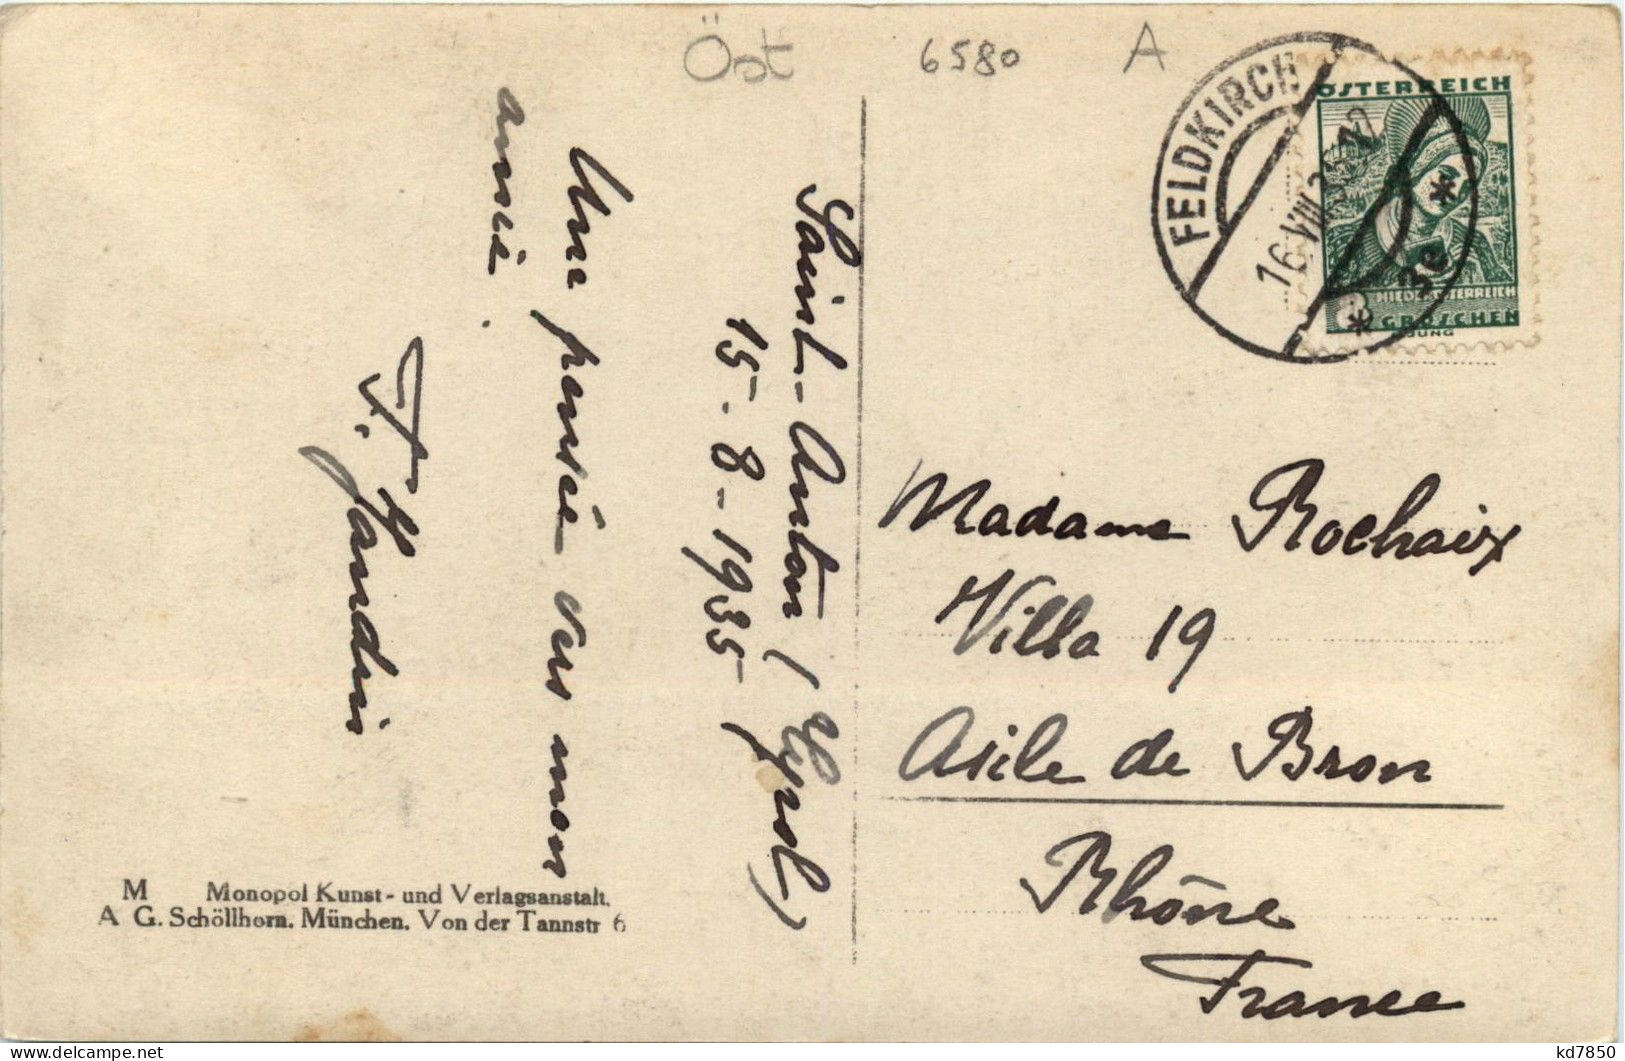 Öst 6580 A
FELDKIRCH
16.VIII.35
* 3e *
ÖSTERREICH
NIEDERÖSTERREICH
3 GROSCHEN
JUNG
Saint-Anton (Tyrol)
15-8-1935
Une pensée de mon
amie.
Madame Rochaix
Villa 19
Asile de Bron
Rhône
France
M Monopol Kunst- und Verlagsanstalt.
A G. Schöllhorn. München. Von der Tannstr 6
kd7850